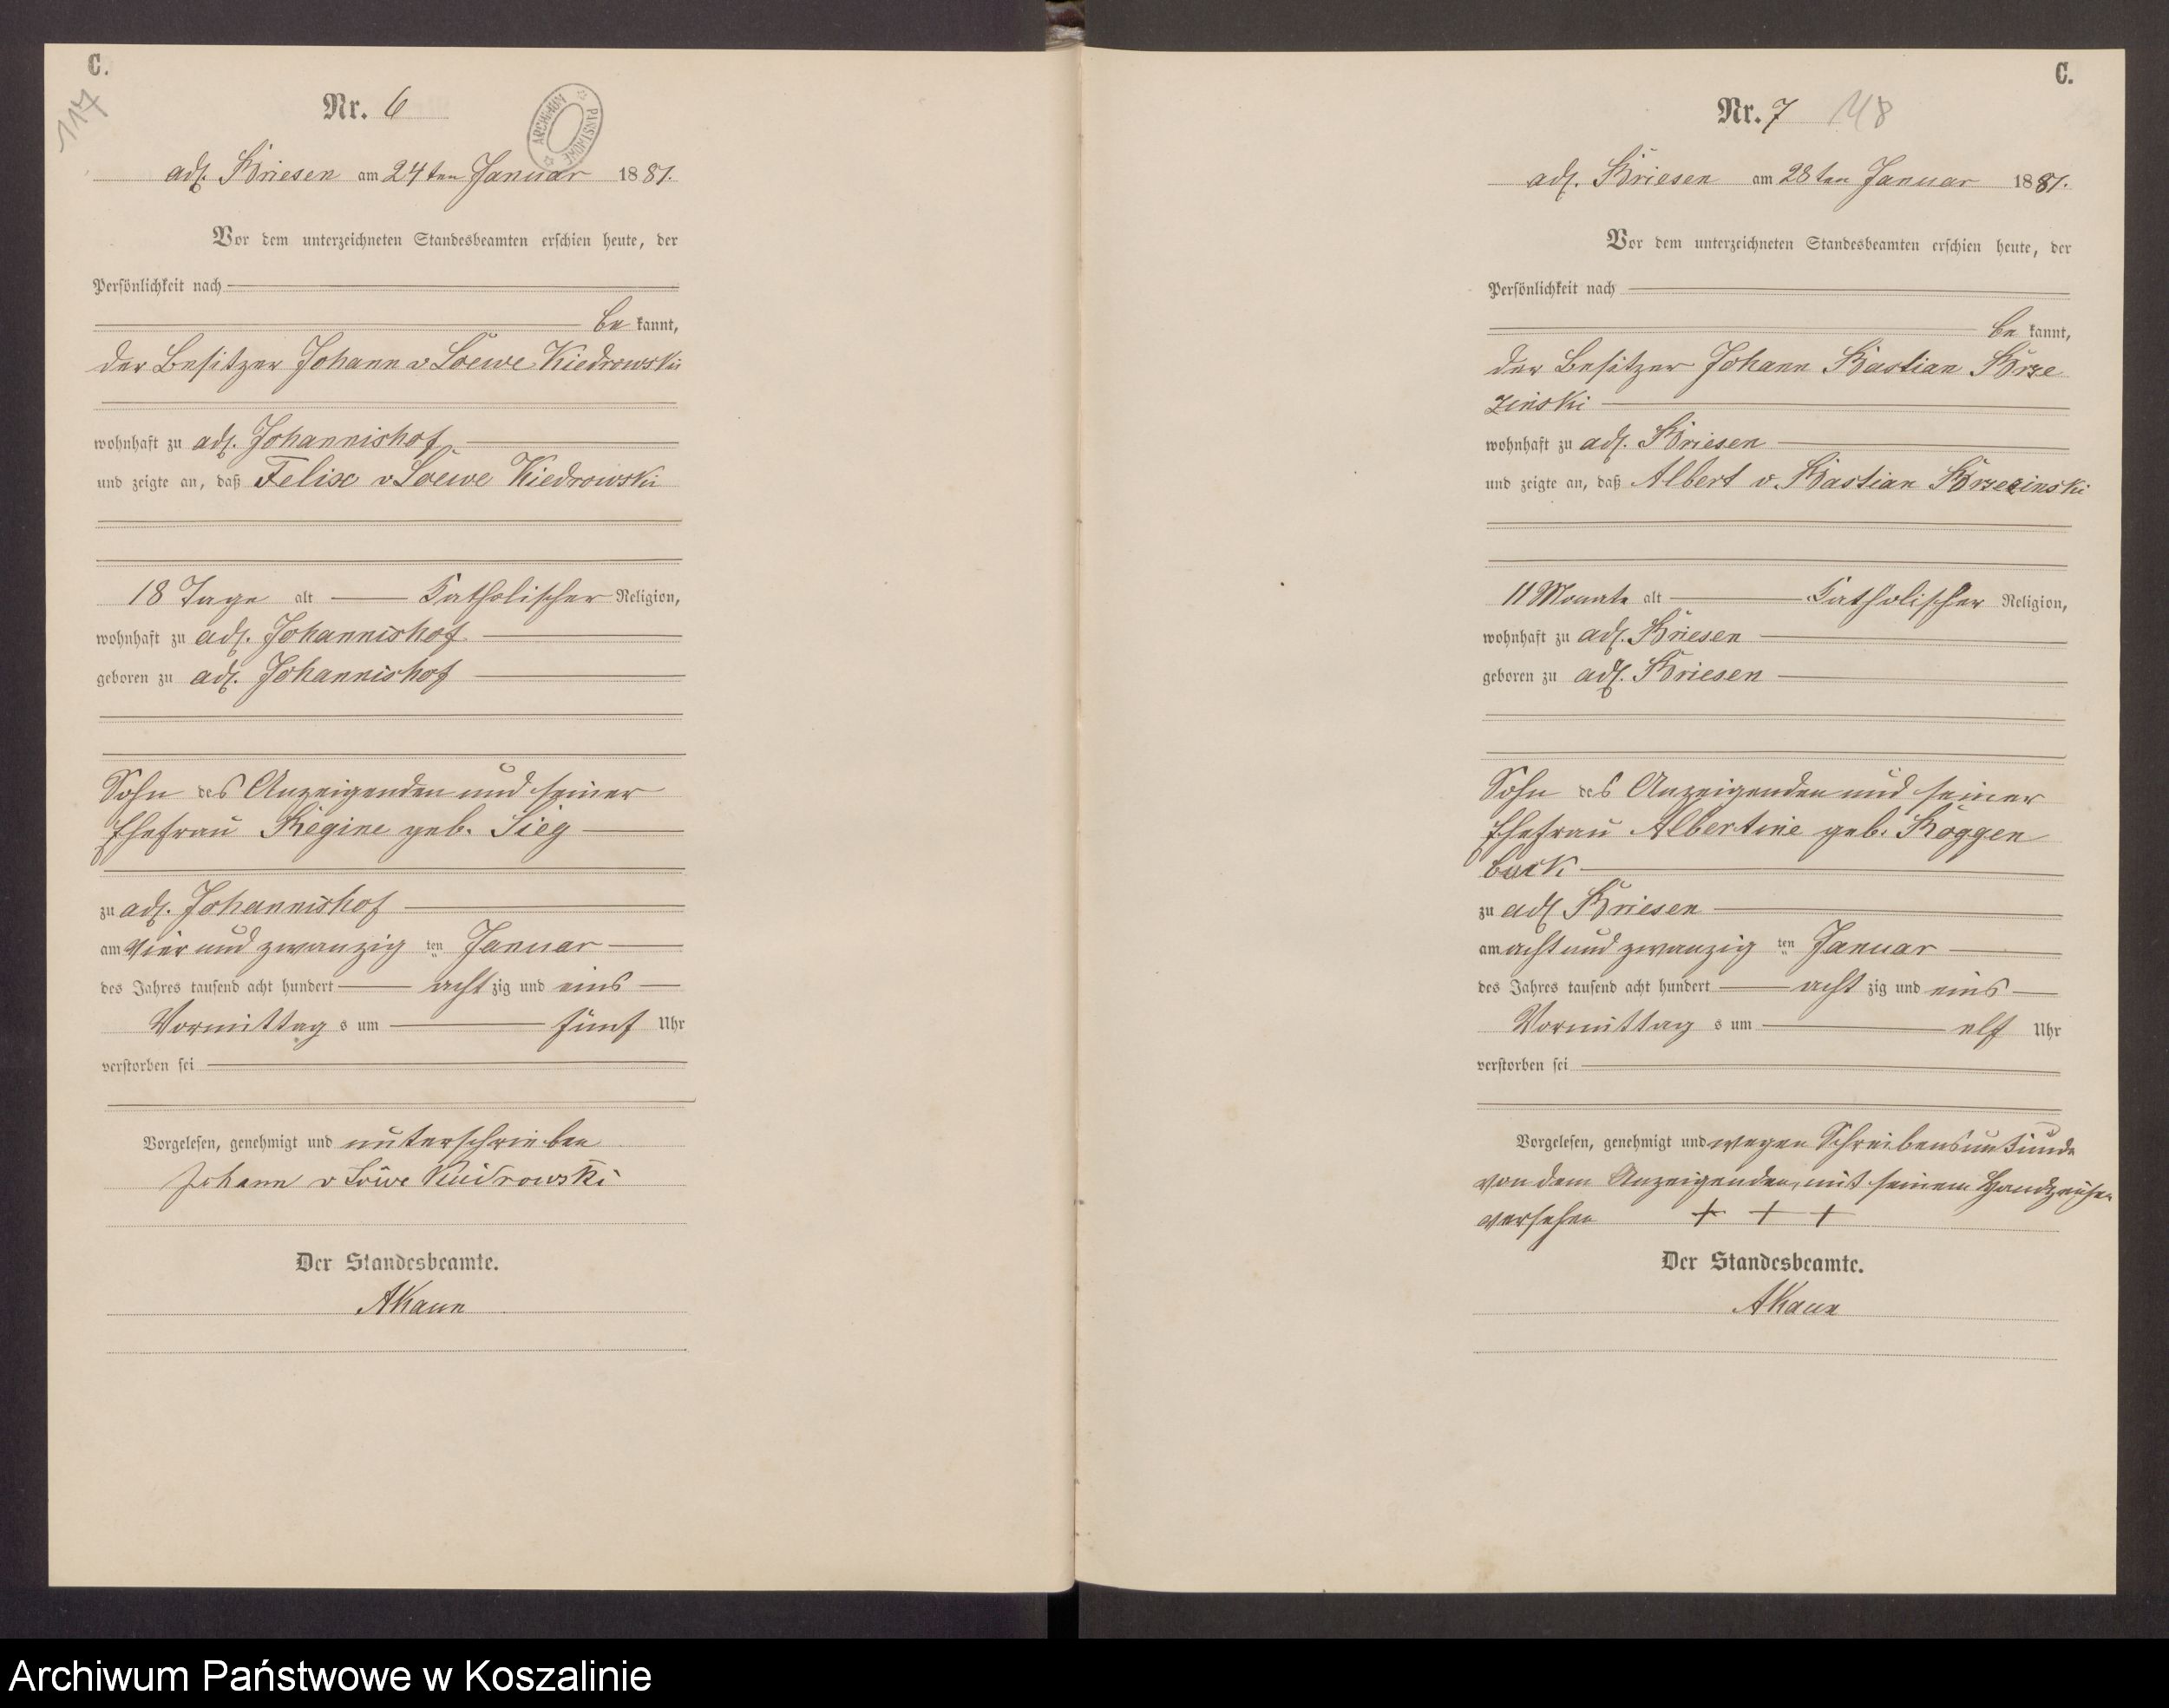 C.
117
Nr. 6
ARCHIWUM PAŃSTWOWE
adl. Briesen am 24ten Januar 1881.
Vor dem unterzeichneten Standesbeamten erschien heute, der
Persönlichkeit nach
be kannt,
der Besitzer Johann v Loewe Kiedrowski
wohnhaft zu adl. Johannishof
und zeigte an, daß Felix v Loewe Kiedrowski
18 Tage alt katholischer Religion,
wohnhaft zu adl. Johannishof
geboren zu adl. Johannishof
Sohn des Anzeigenden und seiner
Ehefrau Regine geb. Sieg
zu adl. Johannishof
am vier und zwanzig ten Januar
des Jahres tausend acht hundert acht zig und eins
Vormittag s um fünf Uhr
verstorben sei
Vorgelesen, genehmigt und unterschrieben
Johann v Löwe Kiedrowski
Der Standesbeamte.
C.
Nr. 7 118
adl. Briesen am 28ten Januar 1881.
Vor dem unterzeichneten Standesbeamten erschien heute, der
Persönlichkeit nach
be kannt,
der Besitzer Johann Bastian Brze
zinski
wohnhaft zu adl. Briesen
und zeigte an, daß Albert v. Bastian Brzezinski
11 Monate alt katholischer Religion,
wohnhaft zu adl. Briesen
geboren zu adl. Briesen
Sohn des Anzeigenden und seiner
Ehefrau Albertine geb. Roggen
buck
zu adl Briesen
am acht und zwanzig ten Januar
des Jahres tausend acht hundert acht zig und eins
Vormittag s um elf Uhr
verstorben sei
Vorgelesen, genehmigt und wegen Schreibensunkunde
von dem Anzeigenden, mit seinem Handzeichen
versehen + + +
Der Standesbeamte.
Archiwum Państwowe w Koszalinie